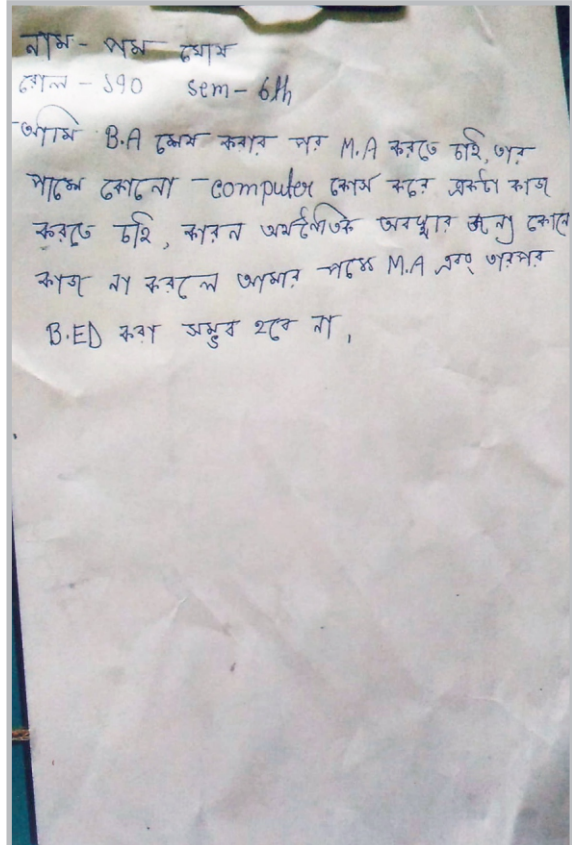 নাম - পম ঘোষ
রোল - ১৭০ sem - 6th
আমি B.A শেষ করার পর M.A করতে চাই, তার
পাশে কোনো computer কোর্স করে একটা কাজ
করতে চাই, কারন অর্থনৈতিক অবস্থার জন্য কোনো
কাজ না করলে আমার পক্ষে M.A এবং তারপর
B.ED করা সম্ভব হবে না,